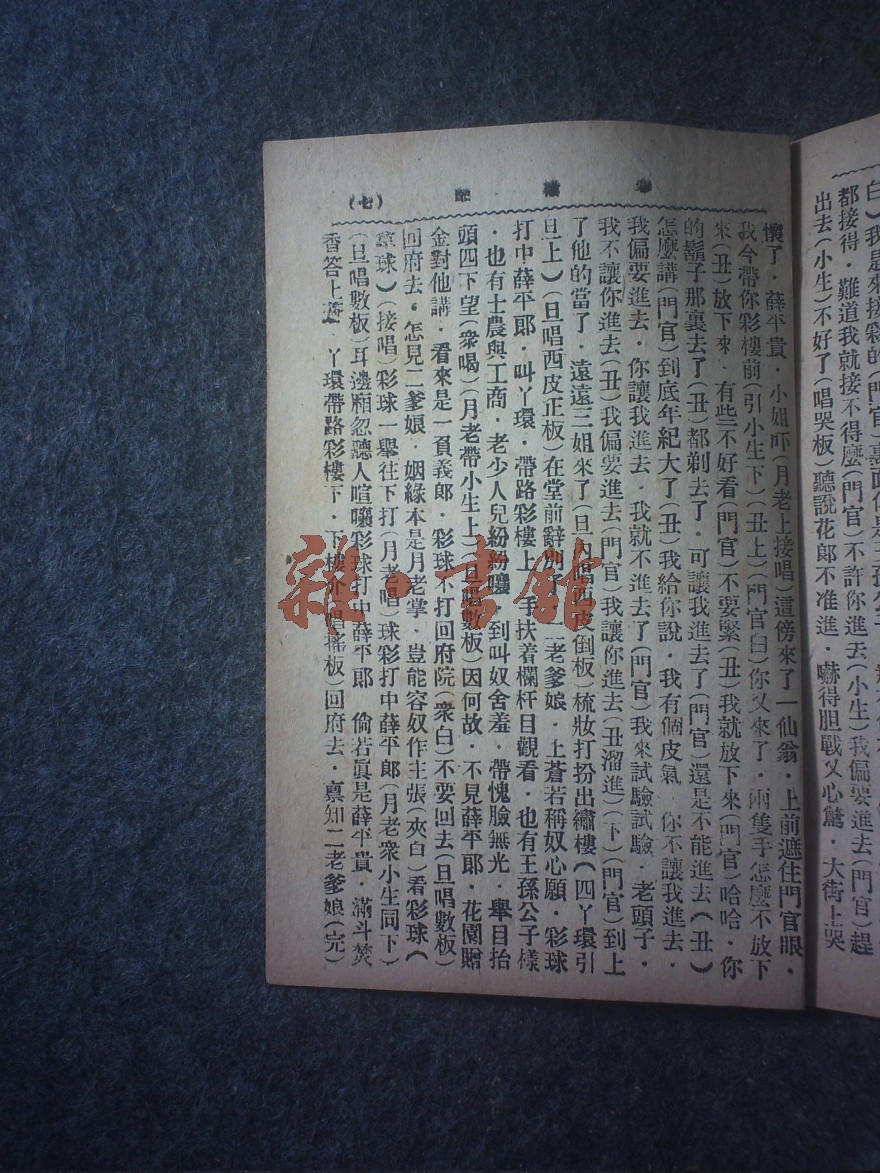 白）我是來接彩的（門官）裏面
都接得．難道我就接不得麼（門官）不許你進去（小生）我偏要進去（門官）趕
出去（小生）不好了（唱哭板）聽說花郎不准進．嚇得胆戰又心驚．大街上哭
彩樓配
（七）
懷了．薛平貴．小姐吓（月老上接唱）這傍來了一仙翁．上前遮住門官眼．
我今帶你彩樓前（引小生下）（丑上）（門官白）你又來了．兩隻手怎麼不放下
來（丑）放下來．有些不好看（門官）不要緊（丑）我就放下來（門官）哈哈．你
的鬍子那裏去了（丑）都剃去了．可讓我進去了（門官）還是不能進去（丑）
怎麼講（門官）到底年紀大了（丑）我給你說．我有個皮氣 你不讓我進去．
我偏要進去．你讓我進去．我就不進去了（門官）我來試驗試驗．老頭子．
我不讓你進去（丑）我偏要進去（門官）我讓你進去（丑溜進）（下）（門官）到上
了他的當了．遠遠三姐來了（旦內唱西皮倒板）梳妝打扮出繡樓（四丫環引
旦上）（旦唱西皮正板）在堂前辭別了二老爹娘．上蒼若稱奴心願．彩球
打中薛平郎．叫丫環．帶路彩樓上．手扶着欄杆目觀看．也有王孫公子樣
．也有士農與工商．老少人兒紛紛嚷 到叫奴舍羞．帶愧臉無光．舉目抬
頭四下望（衆喝）（月老帶小生上）（旦唱數板）因何故．不見薛平郎．花園贈
金對他講．看來是一頁義郎．彩球不打回府院（衆白）不要回去（旦唱數板）
回府去．怎見二爹娘．姻緣本是月老掌．豈能容奴作主張（夾白）看彩球（
章球）（接唱）彩球一舉往下打（月老唱）球彩打中薛平郎（月老衆小生同下）
（旦唱數板）耳邊厢忽聽人喧嚷彩球打中薛平郎 倘若眞是薛平貴．滿斗焚
香答上蒼．丫環帶路彩樓下．下樓介（唱搖板）回府去．禀知二老爹娘（完）
雜·書館